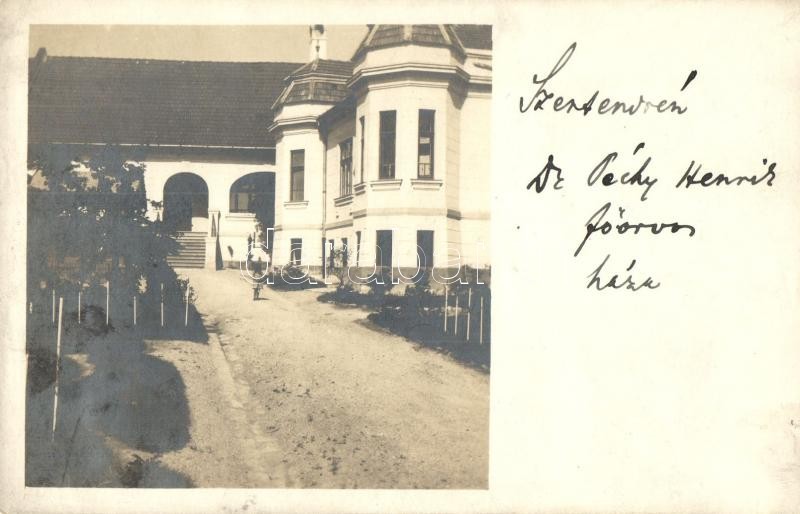 Szentendrén
Dr Péchy Henrik
főorvos
háza
darabanth